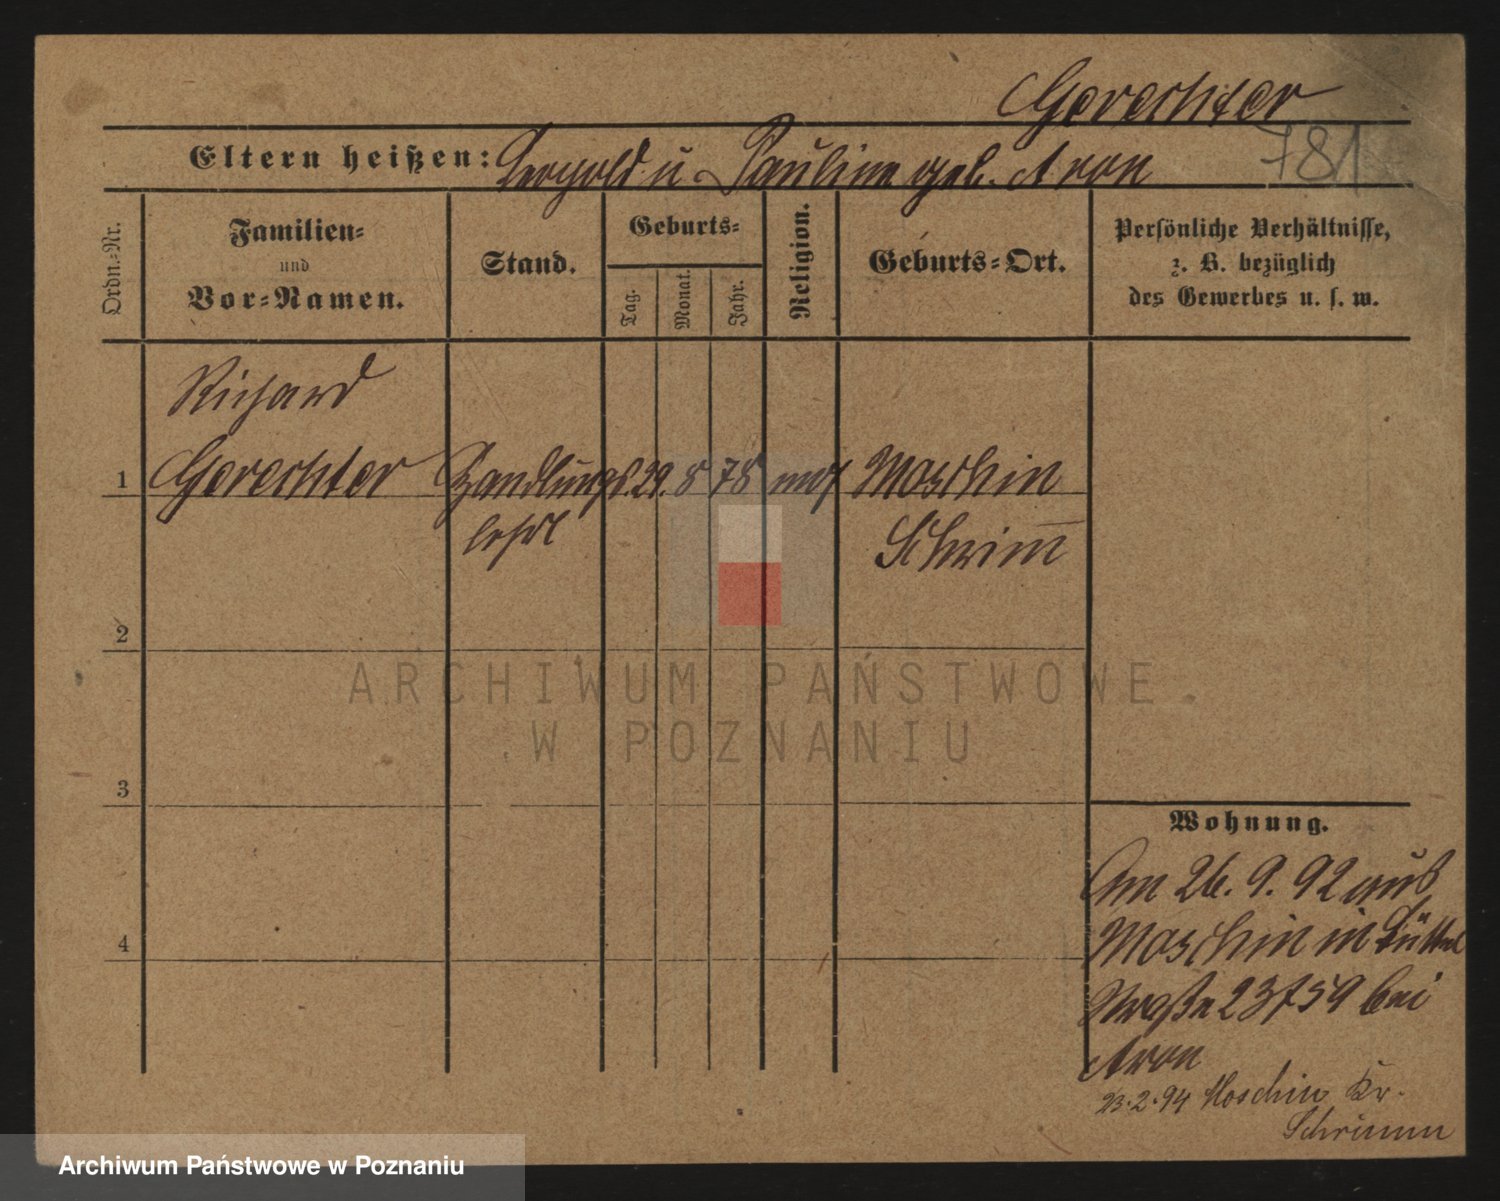 Gerechter
781
Eltern heißen: Leopold u Pauline geb. Aron
Ordn.-Nr.
Familien-
und
Vor-Namen.
Stand.
Geburts-
Tag.
Monat.
Jahr.
Religion.
Geburts-Ort.
Persönliche Verhältnisse,
z. B. bezüglich
des Gewerbes u. s. w.
Richard
1 Gerechter Handlungs 29. 8 78 mos Moschin
lehrl Schrim̅
2
3
4
ARCHIWUM PAŃSTWOWE
W POZNANIU
Wohnung.
Am 26. 9. 92 aus
Moschin in Büttel
Straße 23 bei
Aron
23.2.94 Moschin Kr.
Schrimm
Archiwum Państwowe w Poznaniu